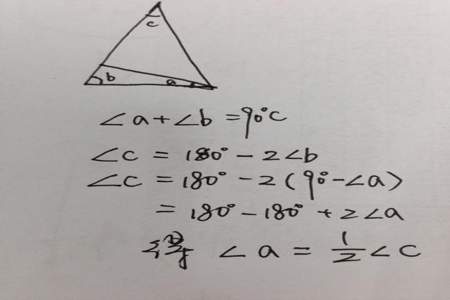 c
b
a
∠a+∠b=90°c
∠c = 180° - 2∠b
∠c = 180° - 2(90-∠a)
= 180° - 180° + 2∠a
得 ∠a = 1/2 ∠c